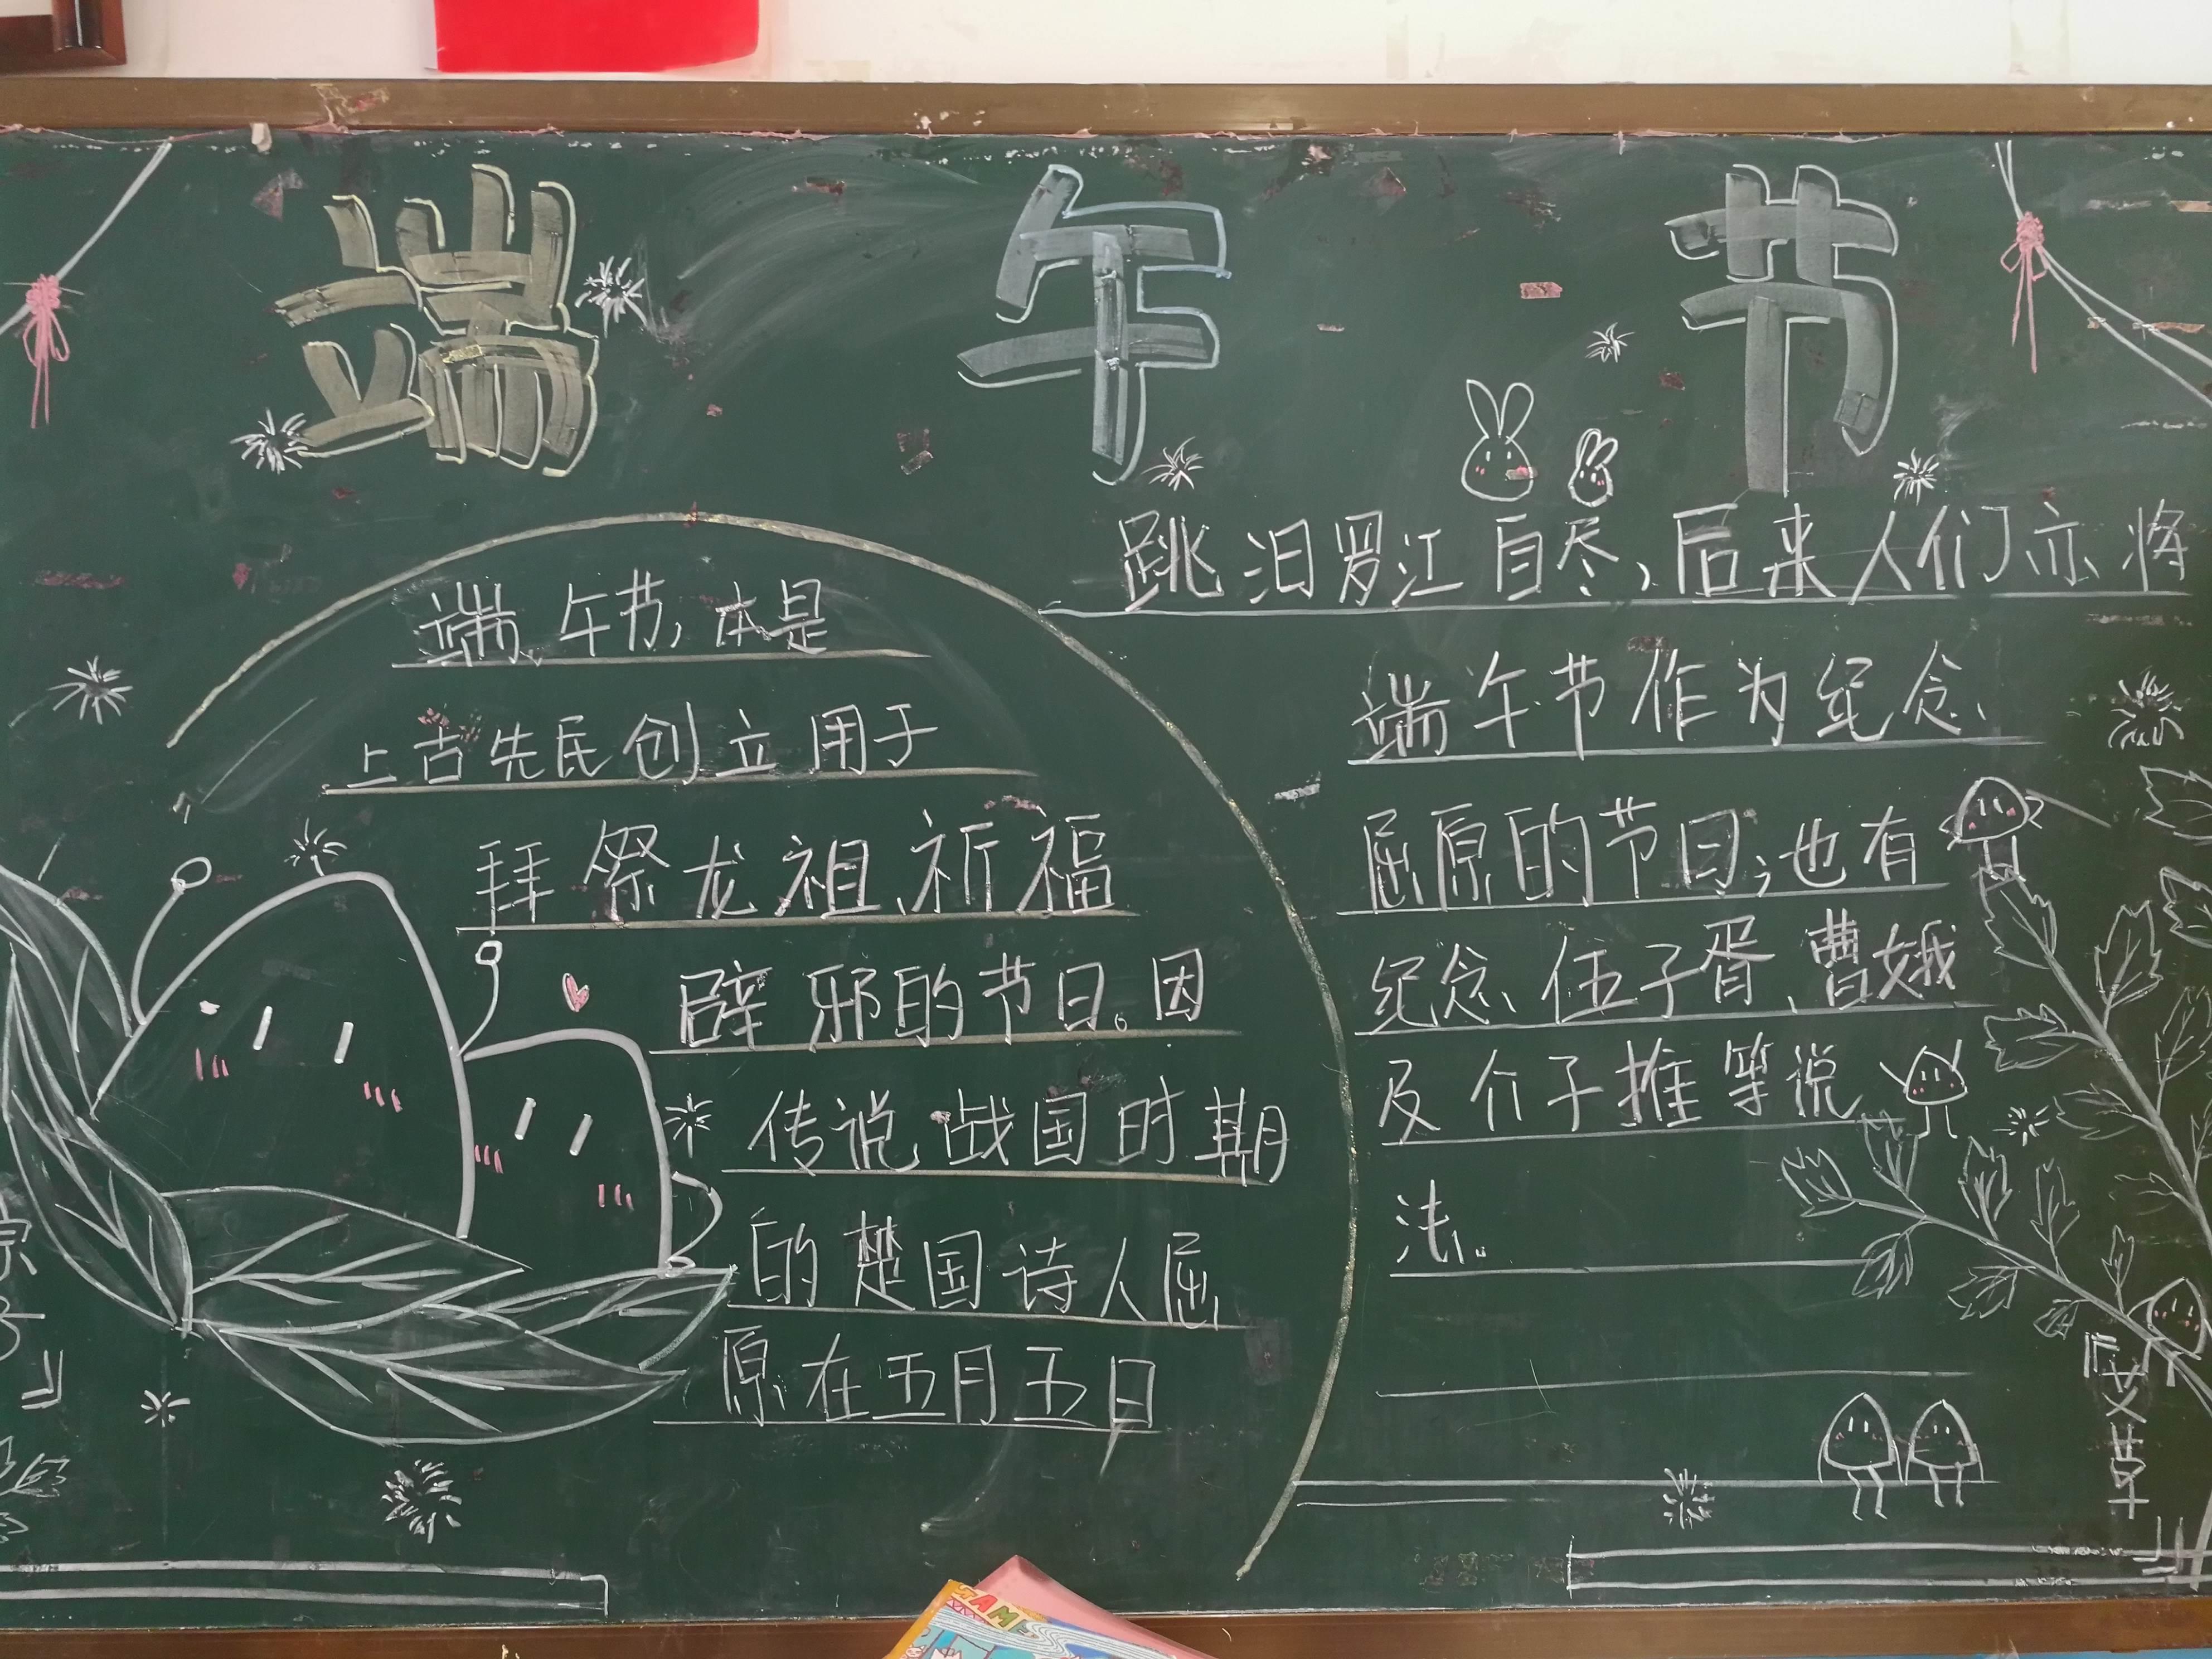 端午节
端午节,本是
上古先民创立用于
拜祭龙祖、祈福
辟邪的节日。因
传说战国时期
的楚国诗人屈
原在五月五日
跳汨罗江自尽,后来人们亦将
端午节作为纪念
屈原的节日;也有
纪念伍子胥、曹娥
及介子推等说
法。
『艾草』
GAME